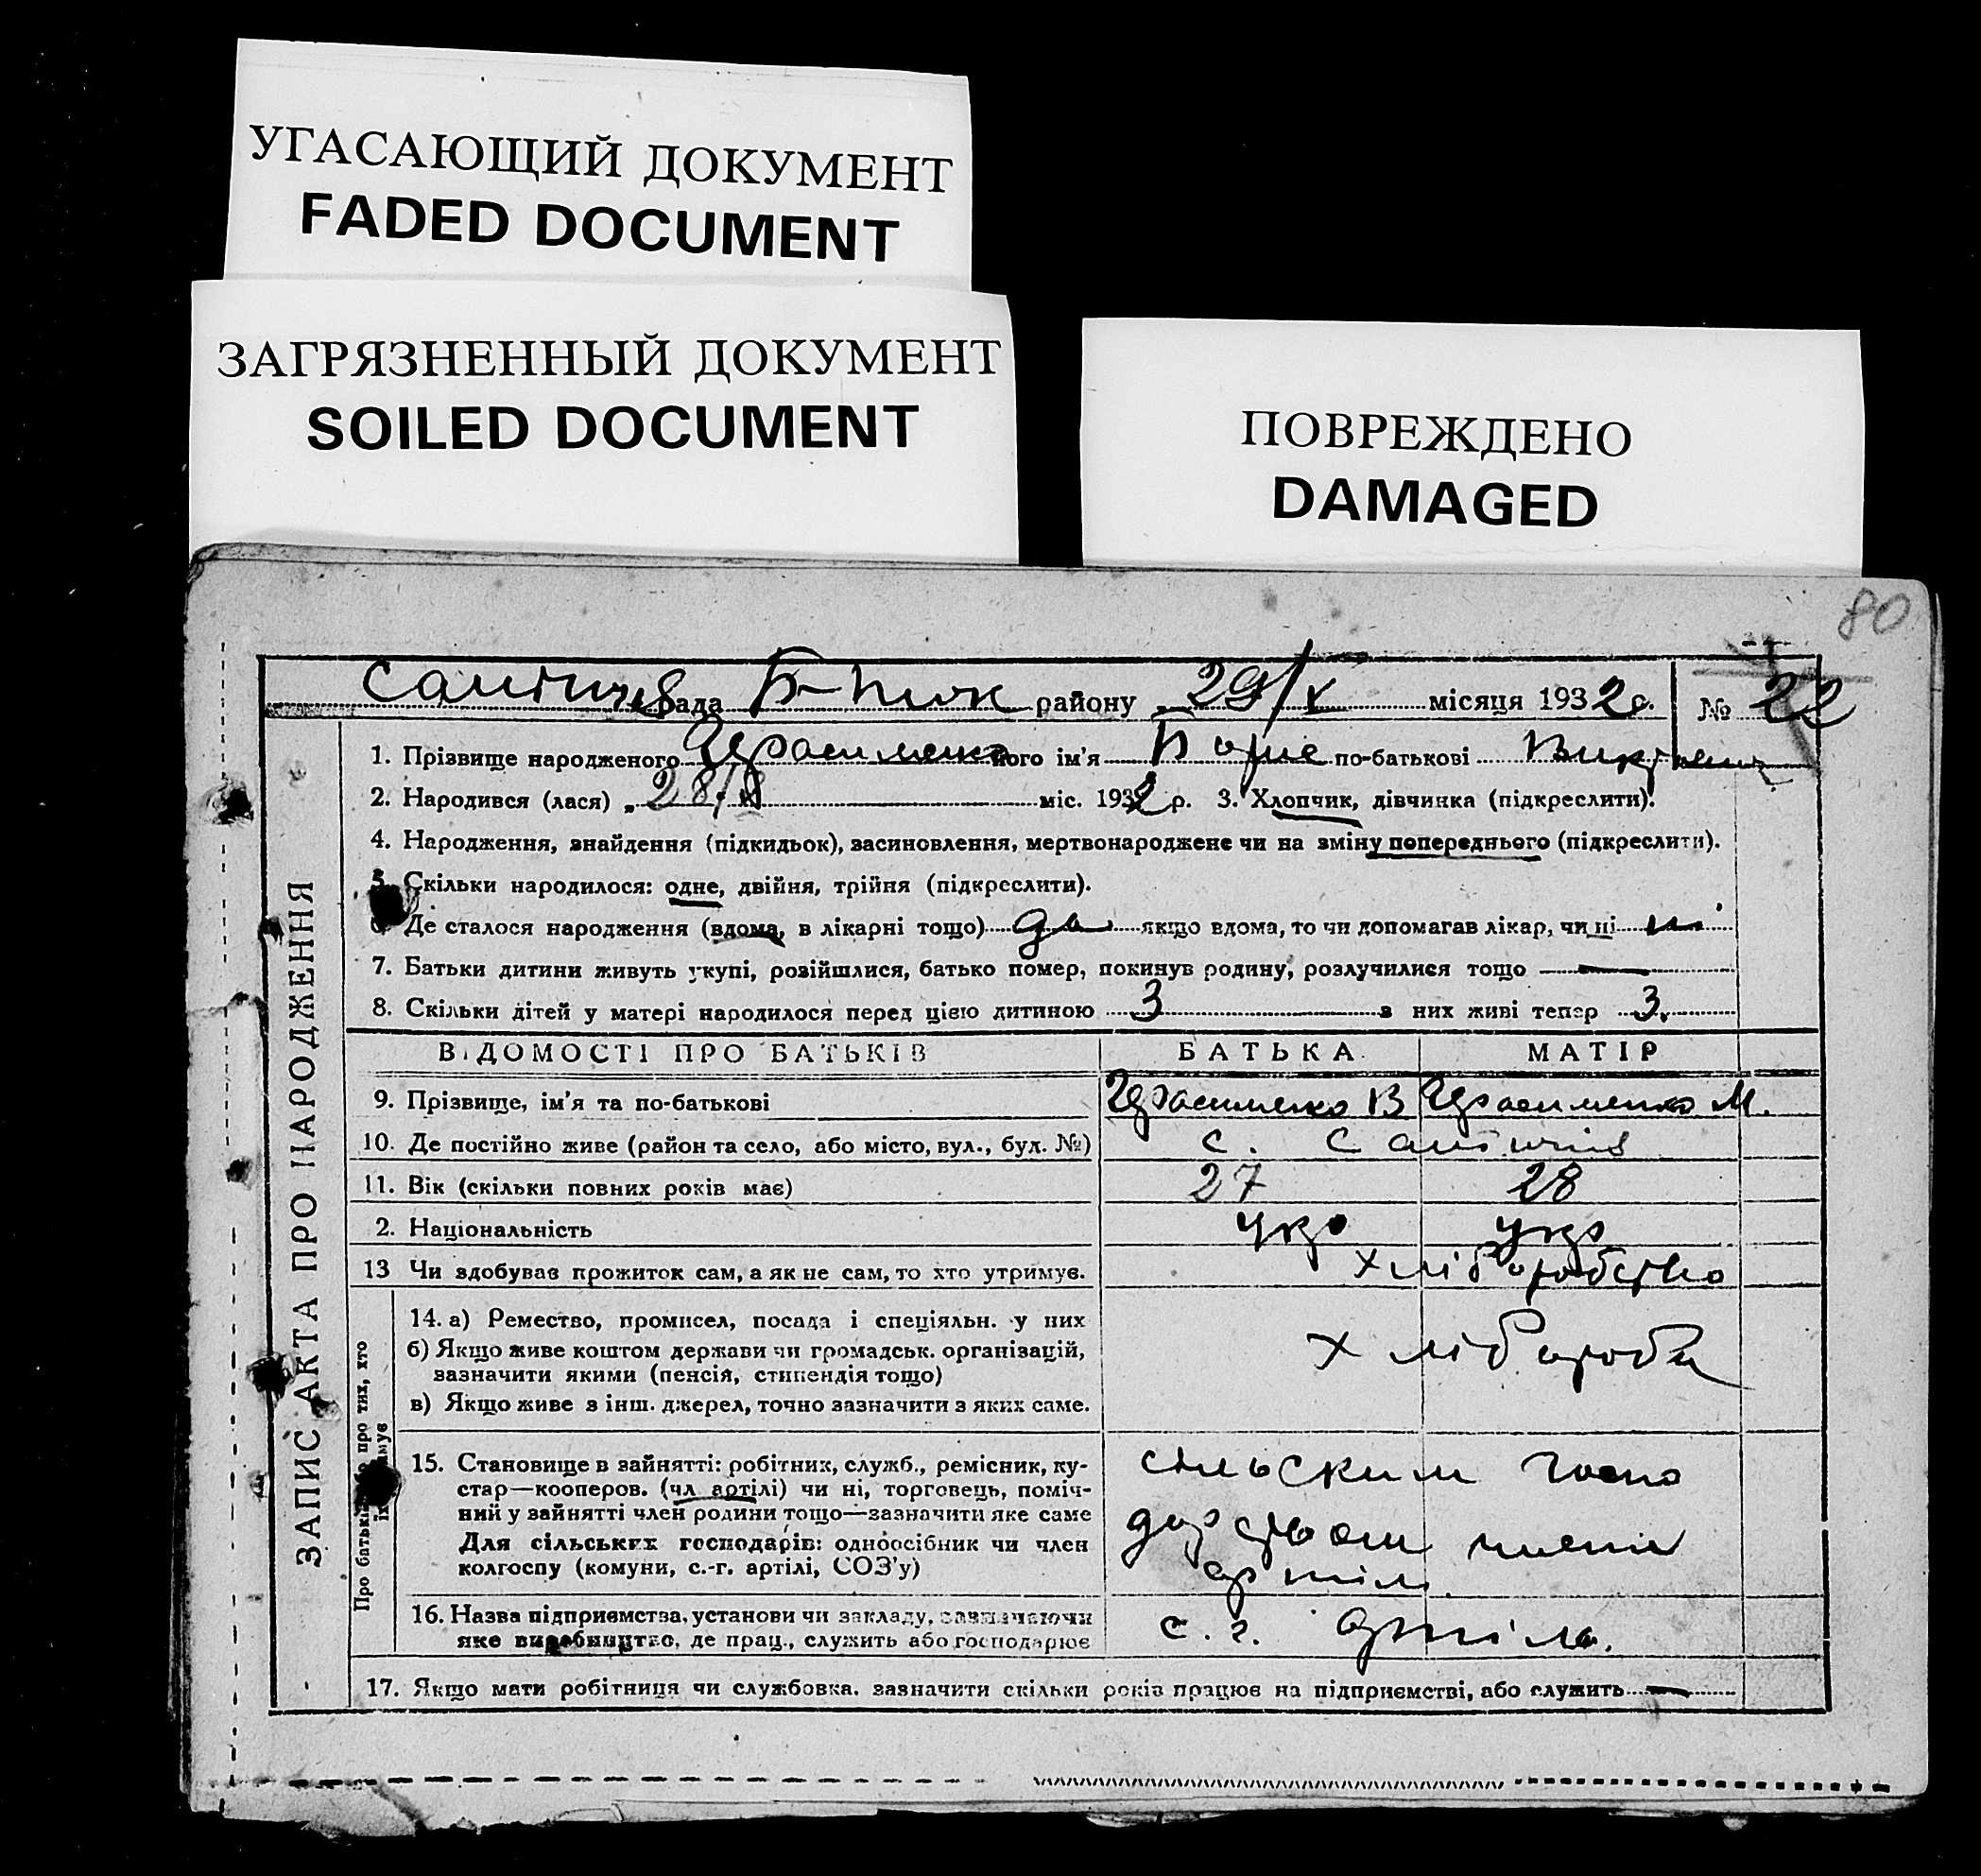 УГАСАЮЩИЙ ДОКУМЕНТ
FADED DOCUMENT
ЗАГРЯЗНЕННЫЙ ДОКУМЕНТ
SOILED DOCUMENT
ПОВРЕЖДЕНО
DAMAGED
80
рада району 29/X місяця 1932 р. № 22
ЗАПИС АКТА ПРО НАРОДЖЕННЯ
1. Прізвище народженого Герасименко його ім'я Борис по-батькові
2. Народився (лася) „ 28/ міс. 1932 р. 3. Хлопчик, дівчинка (підкреслити).
4. Народження, знайдення (підкидьок), засиновлення, мертвонароджене чи на зміну попереднього (підкреслити).
5. Скільки народилося: одне, двійня, трійня (підкреслити).
Де сталося народження (вдома, в лікарні тощо) да якщо вдома, то чи допомагав лікар, чи ні ні
7. Батьки дитини живуть укупі, розійшлися, батько помер, покинув родину, розлучилися тощо —
8. Скільки дітей у матері народилося перед цією дитиною 3 з них живі тепер 3.
ВІДОМОСТІ ПРО БАТЬКІВ БАТЬКА МАТІР
9. Прізвище, ім'я та по-батькові Герасименко В Герасименко М.
10. Де постійно живе (район та село, або місто, вул., буд. №) с.
11. Вік (скільки повних років має) 27 28
2. Національність укр укр
13 Чи здобував прожиток сам, а як не сам, то хто утримує. хліборобство
Про батьків про тих, хто
їх
14. а) Ремество, промисел, посада і спеціяльн. у них
б) Якщо живе коштом держави чи громадськ. організацій,
зазначити якими (пенсія, стипендія тощо) хлібороби
в) Якщо живе з інш. джерел, точно зазначити з яких саме.
15. Становище в зайнятті: робітник, служб., ремісник, ку-
стар—кооперов. (чл артілі) чи ні, торговець, поміч-
ний у зайнятті член родини тощо—зазначити яке саме
Для сільських господарів: одноосібник чи член
колгоспу (комуни, с.-г. артілі, СОЗ'у)
сільским госпо
дарством члени
артіли
16. Назва підприємства, установи чи закладу, зазначаючи
яке виробництво, де прац., служить або господарює с. г. артіль.
17. Якщо мати робітниця чи службовка, зазначити скільки років працює на підприємстві, або служить —